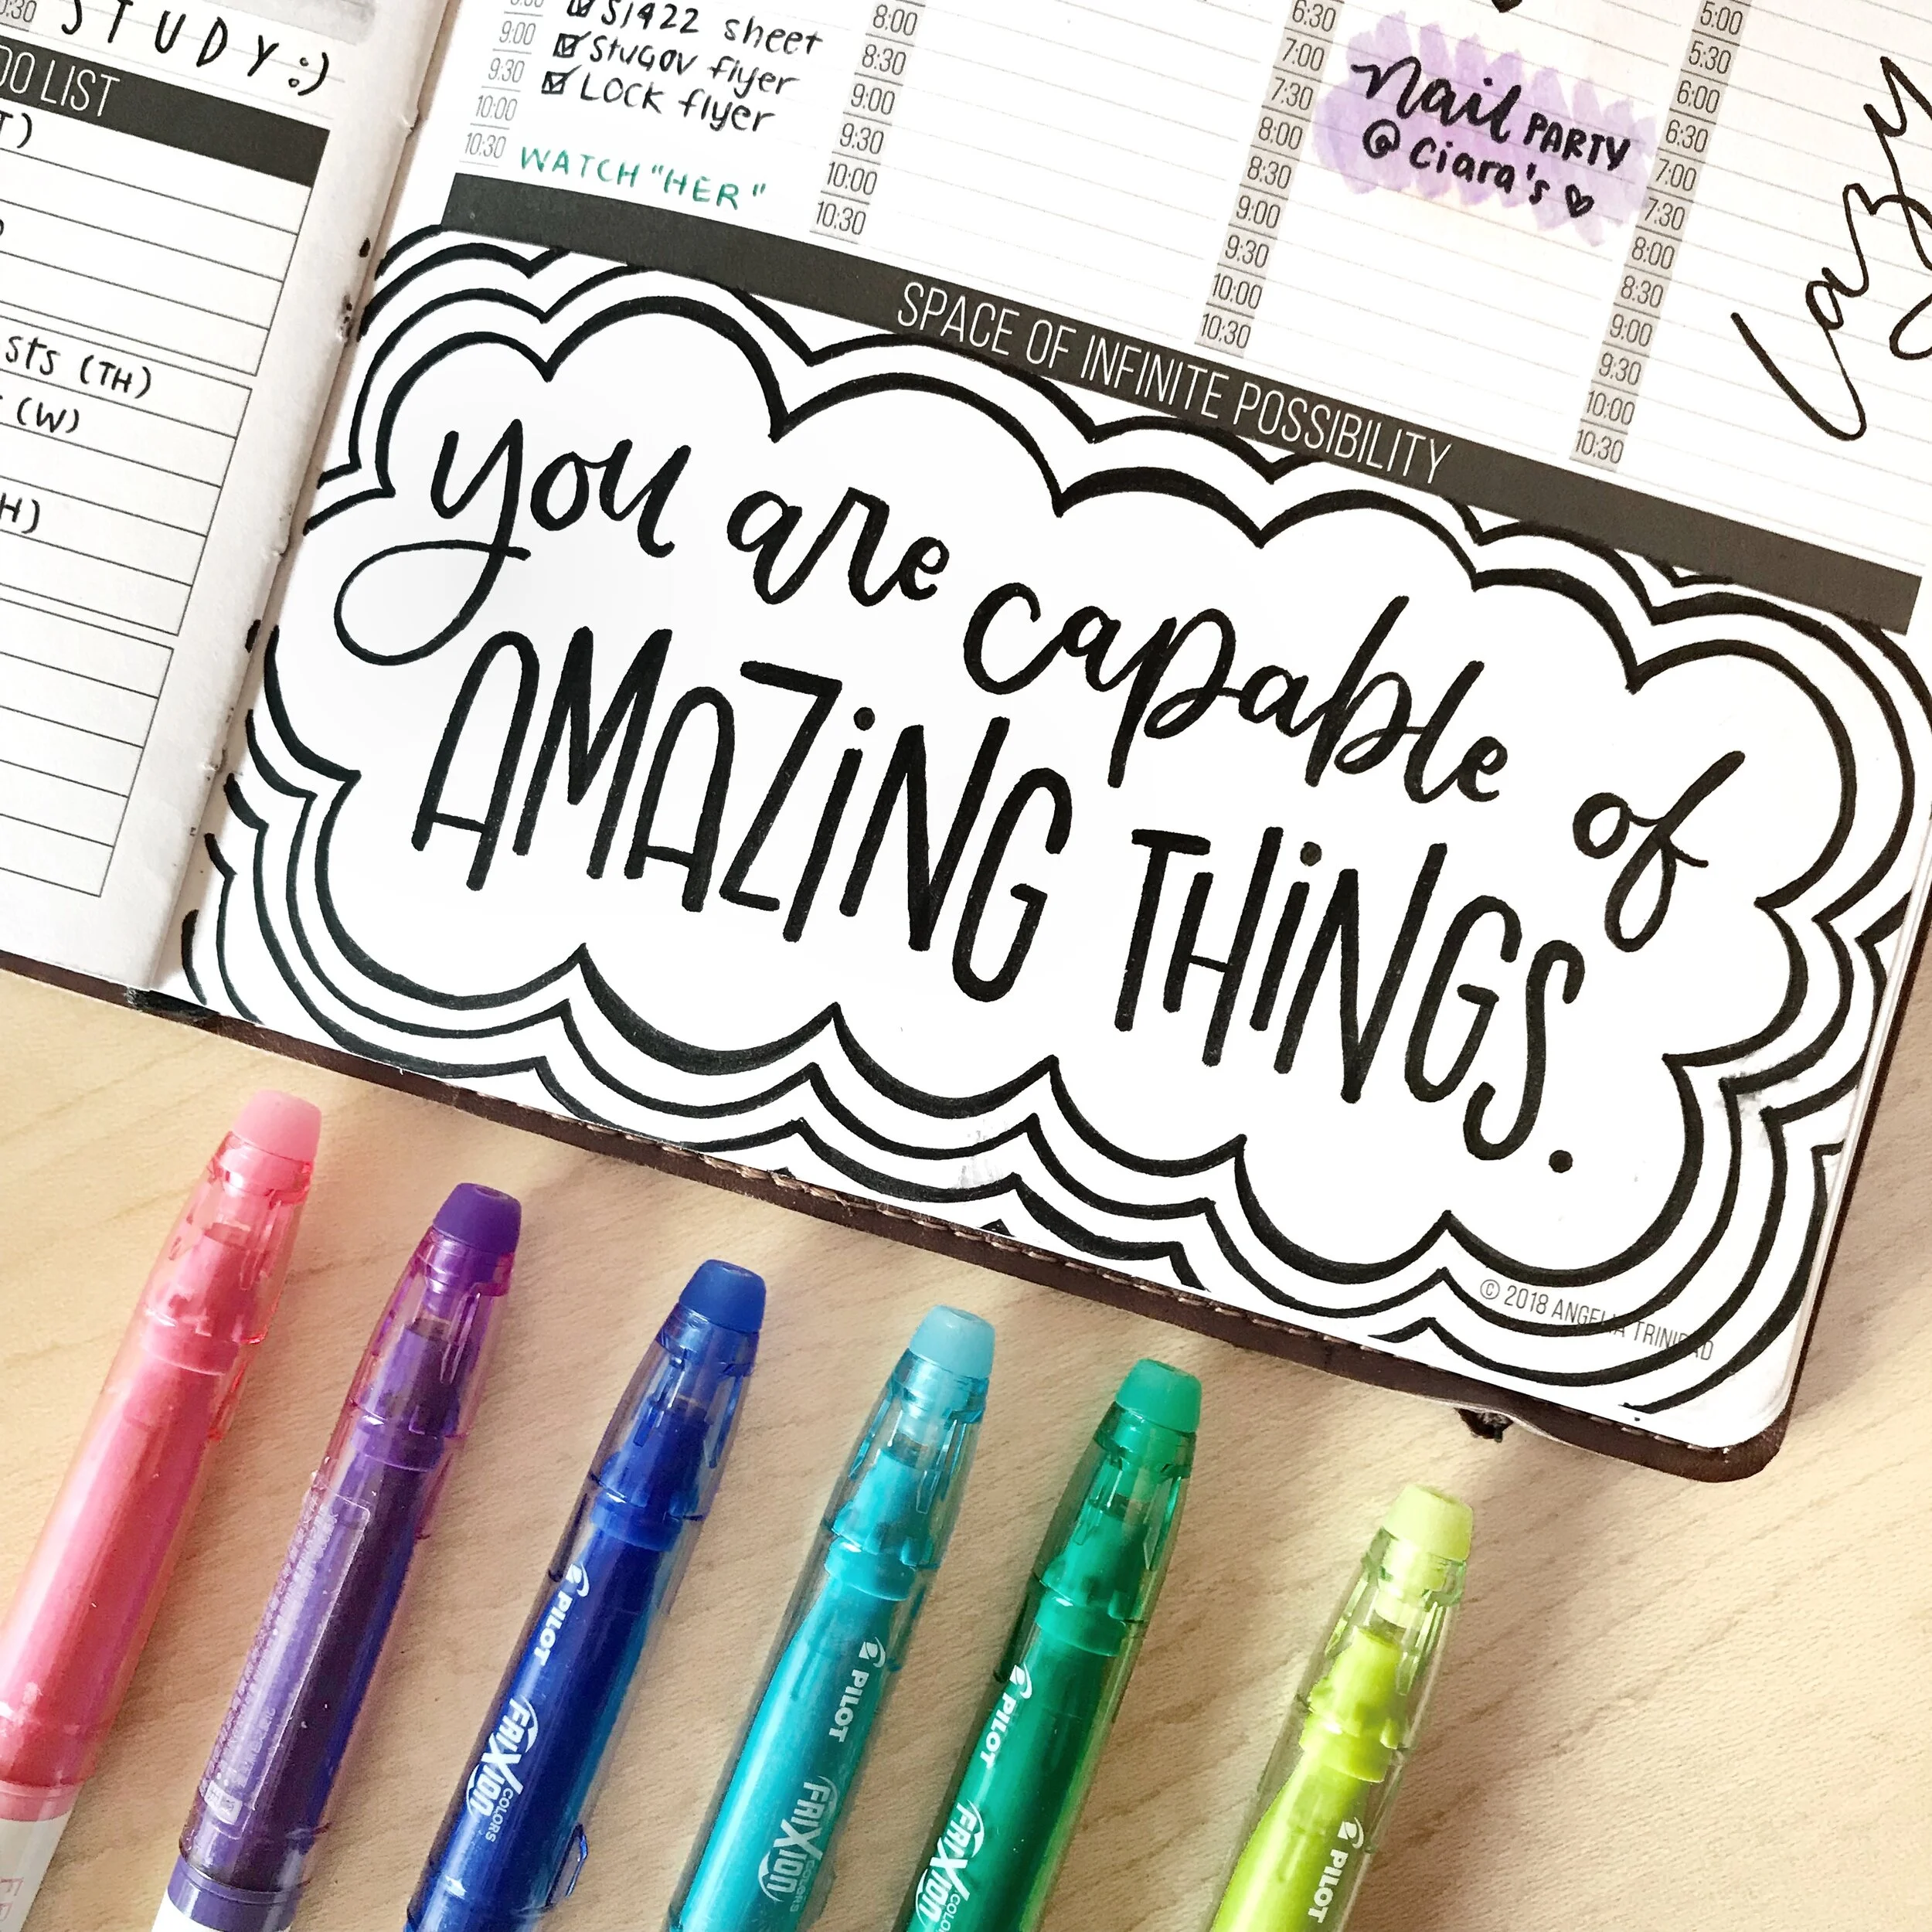 STUDY :)
DO LIST
T)
sts (TH)
(W)
H)
9:00
9:30
10:00
10:30
S1422 sheet
StuGov flyer
LOCK flyer
WATCH "HER"
8:00
8:30
9:00
9:30
10:00
10:30
6:30
7:00
7:30
8:00
8:30
9:00
9:30
10:00
10:30
nail PARTY
@ Ciara's
5:00
5:30
6:00
6:30
7:00
7:30
8:00
8:30
9:00
9:30
10:00
10:30
lazy
SPACE OF INFINITE POSSIBILITY
you are capable of
AMAZiNG THiNGS.
© 2018 ANGELIA TRINIDAD
PILOT
FRIXION
COLORS
PILOT
FRIXION
COLORS
PILOT
FRIXION
COLO
PILOT